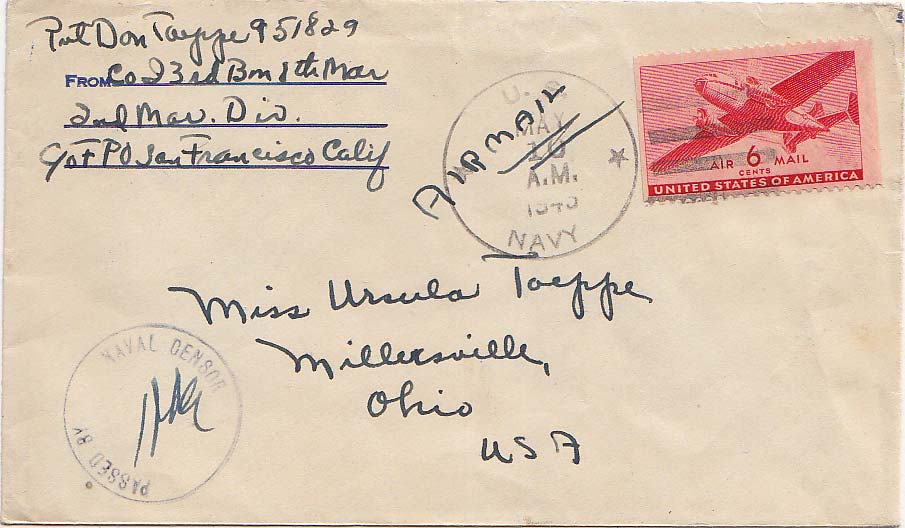 Pvt Don Toeppe 951829
FROM Co I 3rd Bn 8th Mar
2nd Mar. Div.
c/o F PO San Francisco Calif
AIR MAIL
U. S.
MAY
A.M.
NAVY
AIR 6 MAIL
CENTS
UNITED STATES OF AMERICA
Miss Ursula Toeppe
Millersville,
Ohio
USA
NAVAL CENSOR
PASSED BY